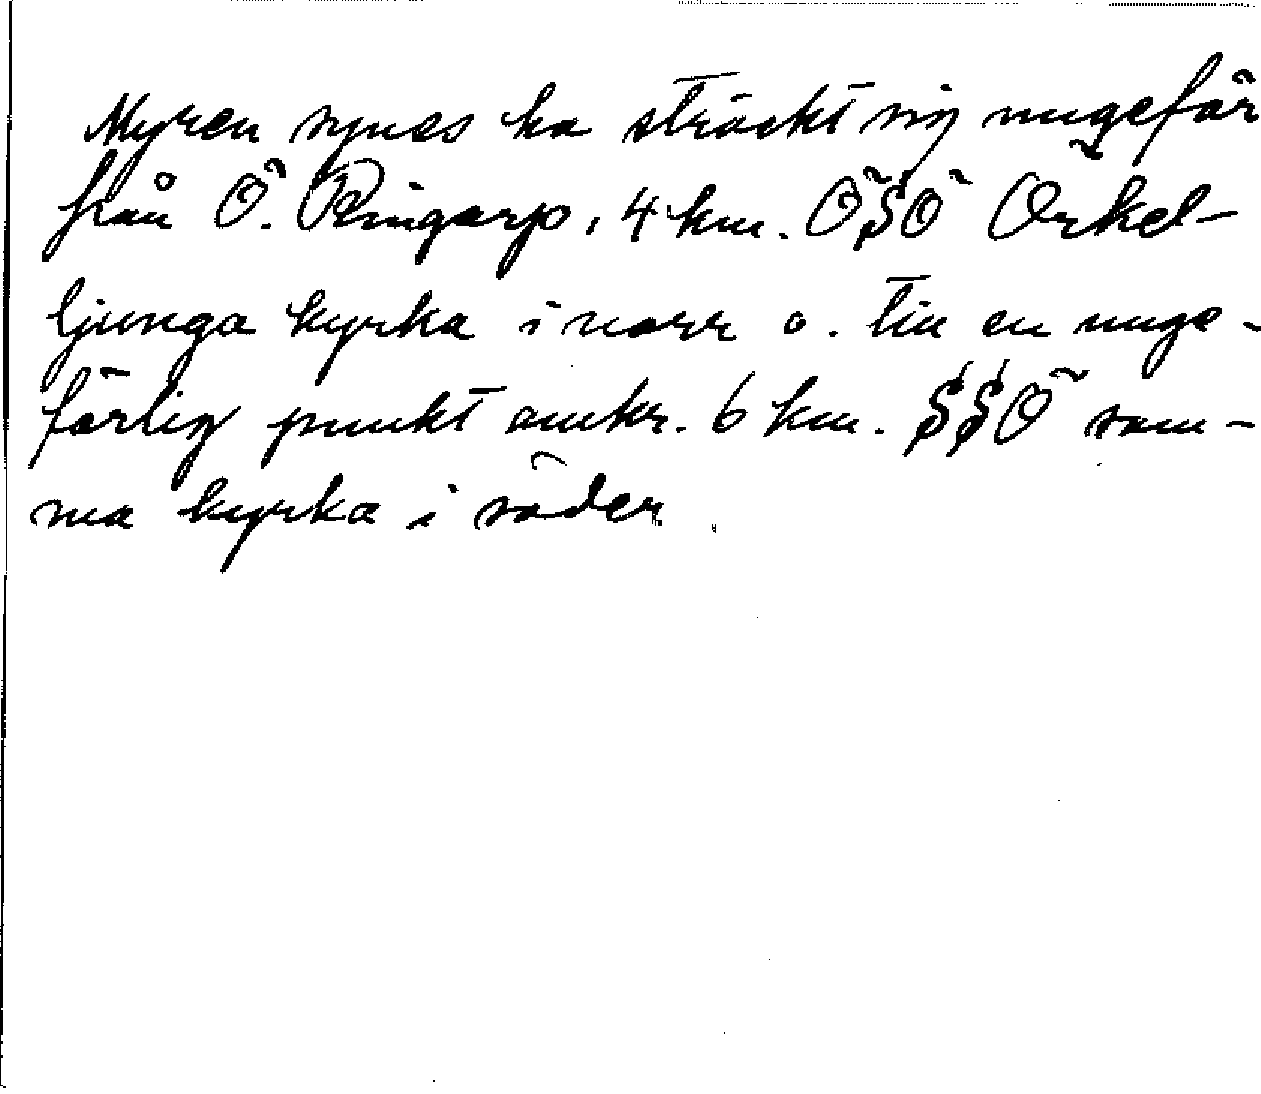 Myren synes ha sträckt sig ungefär
från Ö. Ringarp, 4 km. ÖSÖ Örkel-
ljunga kyrka i norr o. till en unge-
färlig punkt omkr. 6 km. SSÖ sam-
ma kyrka i söder.